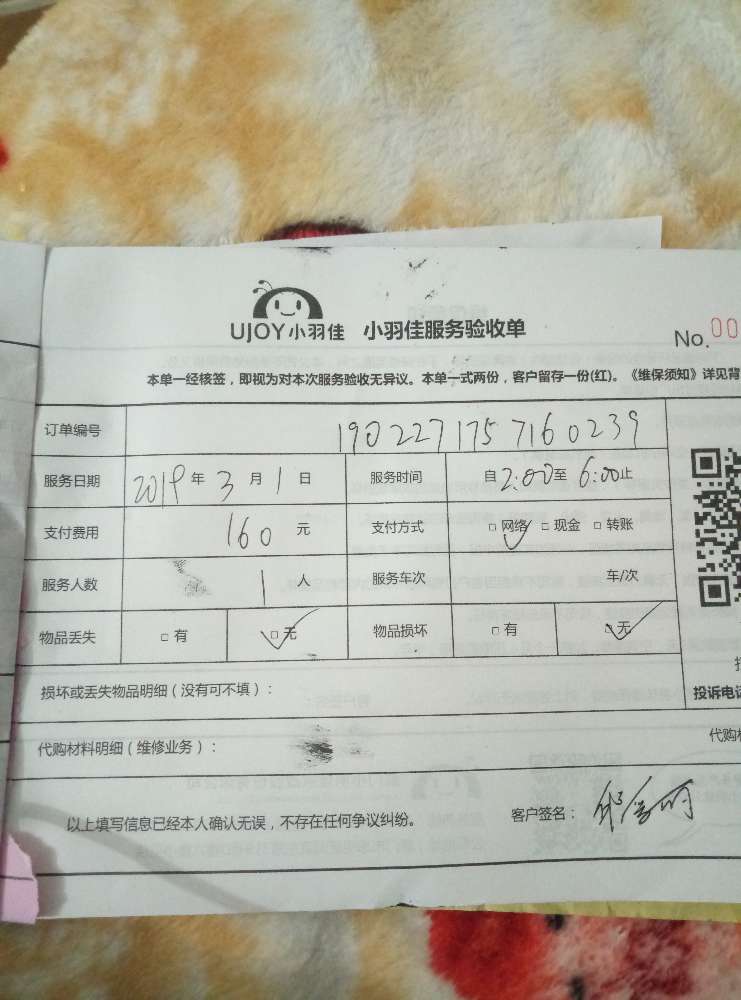 UJOY小羽佳 小羽佳服务验收单
No.00
本单一经核签，即视为对本次服务验收无异议。本单一式两份，客户留存一份(红)。《维保须知》详见背
订单编号 190227175716 0239
服务日期 2019年3月1日 服务时间 自2:00至6:00止
支付费用 160元 支付方式 □网络 □现金 □转账
服务人数 1人 服务车次 车/次
物品丢失 □有 □无 物品损坏 □有 □无
损坏或丢失物品明细（没有可不填）：
投诉电话
代购材料明细（维修业务）：
代购材
以上填写信息已经本人确认无误，不存在任何争议纠纷。 客户签名：